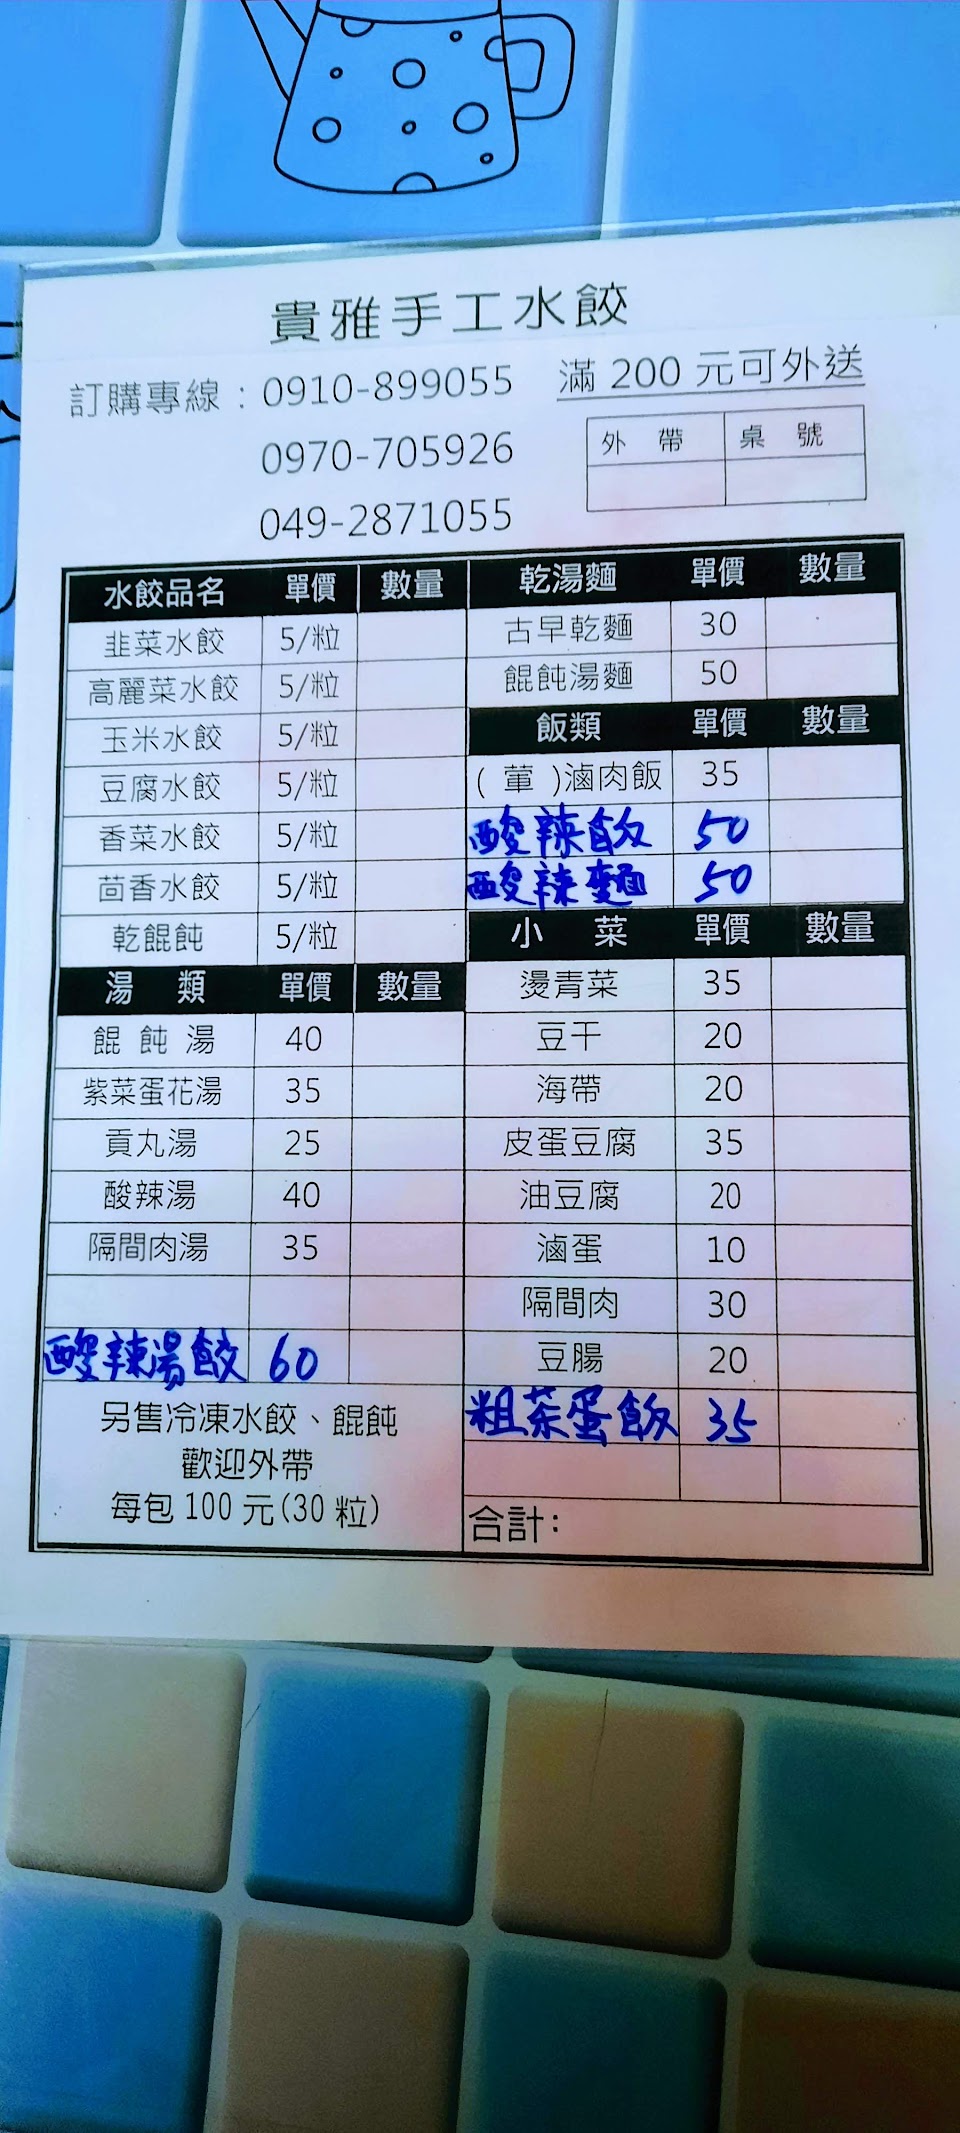 貴雅手工水餃
訂購專線：0910-899055 滿200元可外送
0970-705926
049-2871055
外帶 桌號
水餃品名 單價 數量
韭菜水餃 5/粒
高麗菜水餃 5/粒
玉米水餃 5/粒
豆腐水餃 5/粒
香菜水餃 5/粒
茴香水餃 5/粒
乾餛飩 5/粒
湯類 單價 數量
餛飩湯 40
紫菜蛋花湯 35
貢丸湯 25
酸辣湯 40
隔間肉湯 35
酸辣湯餃 60
另售冷凍水餃、餛飩
歡迎外帶
每包100元(30粒)
乾湯麵 單價 數量
古早乾麵 30
餛飩湯麵 50
飯類 單價 數量
(葷)滷肉飯 35
酸辣飯 50
酸辣麵 50
小菜 單價 數量
燙青菜 35
豆干 20
海帶 20
皮蛋豆腐 35
油豆腐 20
滷蛋 10
隔間肉 30
豆腸 20
粗茶蛋飯 35
合計: